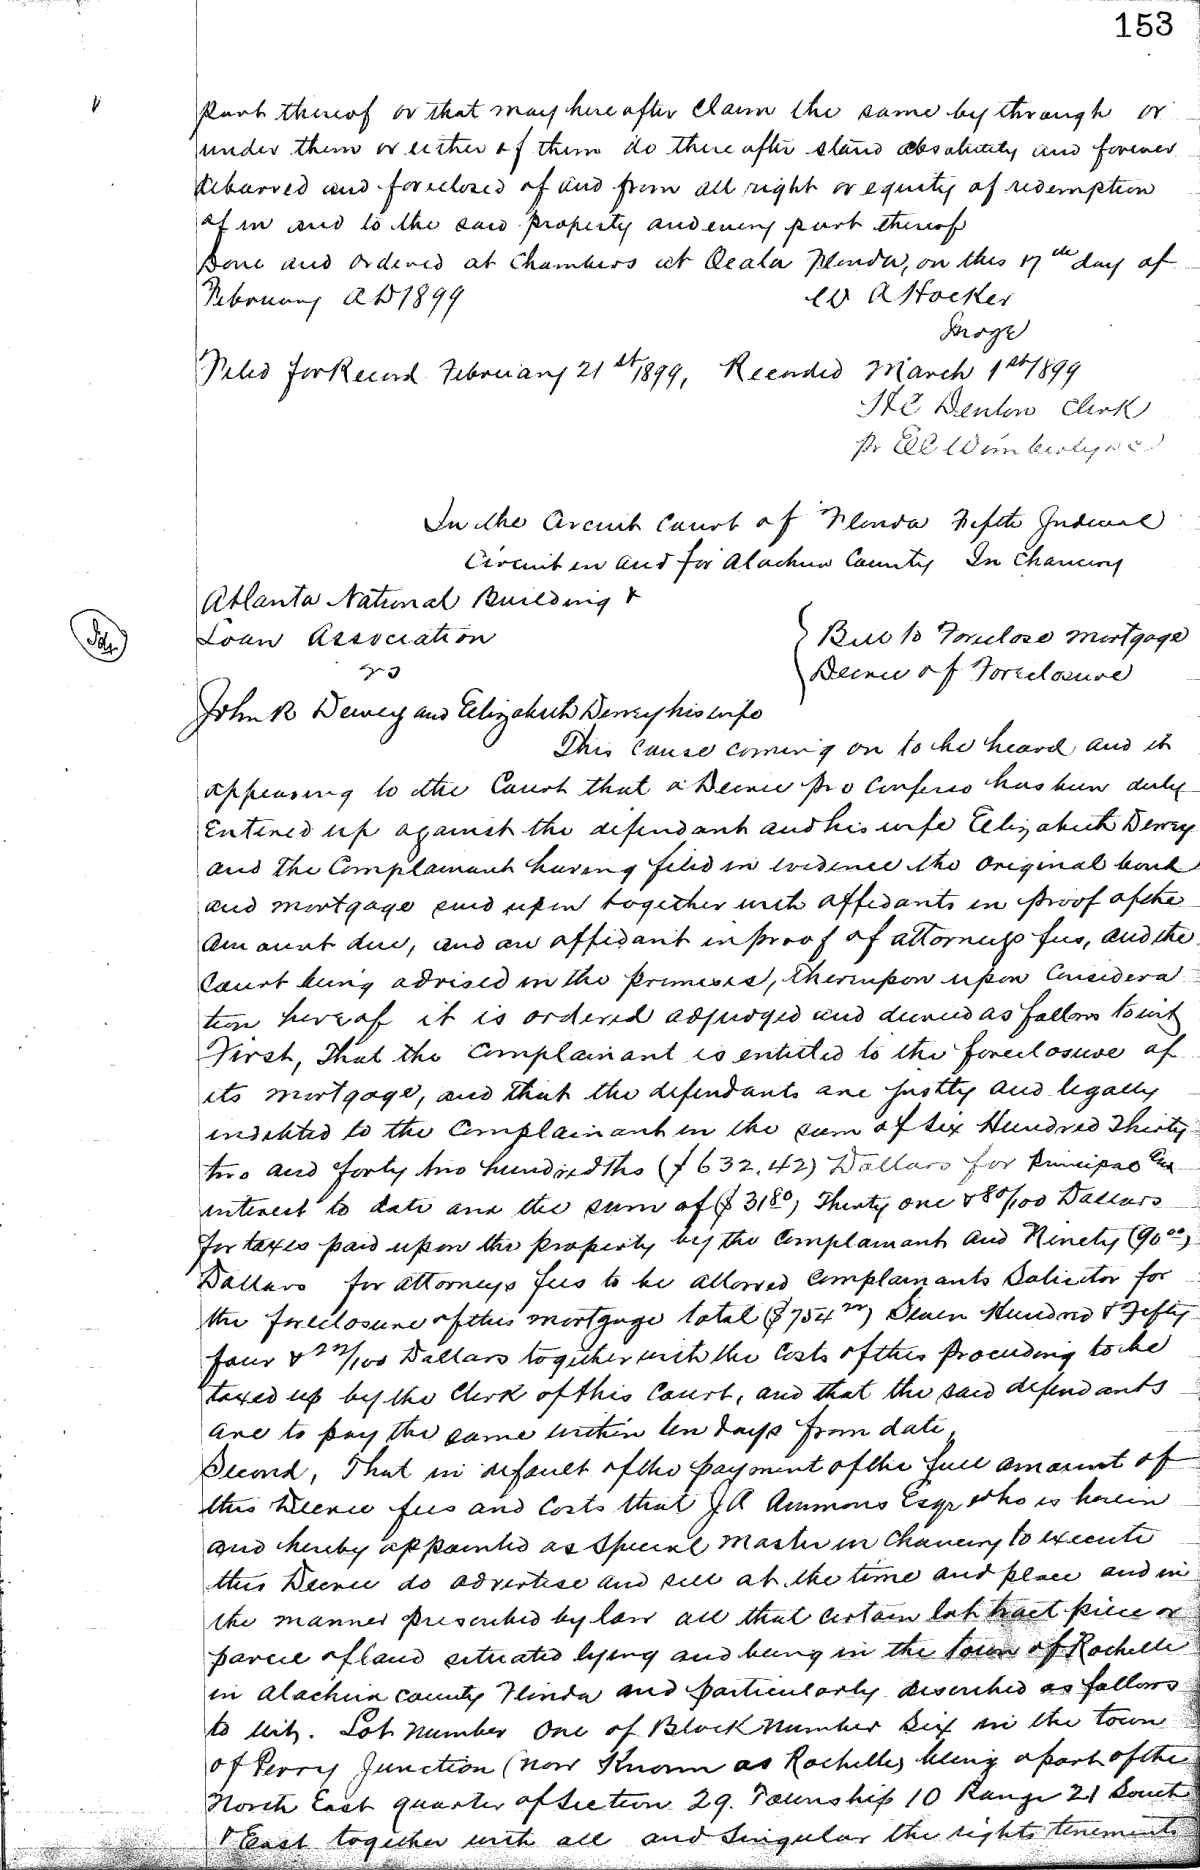 153
part thereof or that may hereafter claim the same by through or
under them or either of them do thereafter stand absolutely and forever
debarred and foreclosed of and from all right or equity of redemption
of in and to the said property and every part thereof
Done and ordered at Chambers at Ocala Florida, on this 17th day of
February A D 1899 W A Hocker
Judge
Filed for Record February 21st 1899, Recorded March 1st 1899
H C Denton Clerk
pr E C Wimberly D C
In the Circuit Court of Florida Fifth Judicial
Circuit in and for Alachua County In Chancery
Atlanta National Building &
Loan Association
vs
Bill to Foreclose Mortgage
Decree of Foreclosure
John R Dewey and Elizabeth Dewey his wife
This cause coming on to be heard and it
appearing to the Court that a Decree Pro Confesso has been duly
Entered up against the defendant and his wife Elizabeth Dewey
and the Complainant having filed in evidence the original bond
and mortgage sued upon together with affidavits in proof of the
amount due, and an affidavit in proof of attorneys fees, and the
Court being advised in the premises, thereupon upon Considera
tion hereof it is ordered adjudged and decreed as follows to wit
First, That the Complainant is entitled to the foreclosure of
its mortgage, and that the defendants are justly and legally
indebted to the Complainant in the sum of Six Hundred Thirty
two and forty two hundredths ($632.42) Dollars for Principal and
interest to date and the sum of ($31 80) Thirty one & 80/100 Dollars
for taxes paid upon the property by the Complainant and Ninety (90 00)
Dollars for attorneys fees to be allowed Complainants Solicitor for
the foreclosure of this mortgage total ($754 22) Seven Hundred & Fifty
four & 22/100 Dollars together with the Costs of this proceeding to be
taxed up by the Clerk of this Court, and that the said defendants
are to pay the same within ten days from date,
Second, That in default of the payment of the full amount of
this Decree fees and Costs that J A Ammons Esqr who is herein
and hereby appointed as Special Master in Chancery to execute
this Decree do advertise and sell at the time and place and in
the manner prescribed by law all that certain lot tract piece or
parcel of land situated lying and being in the town of Rochelle
in Alachua County Florida and particularly described as follows
to wit. Lot number One of Block number Six in the town
of Perry Junction (now Known as Rochelle) being a part of the
North East quarter of Section 29. Township 10 Range 21 South
& East together with all and Singular the rights tenements